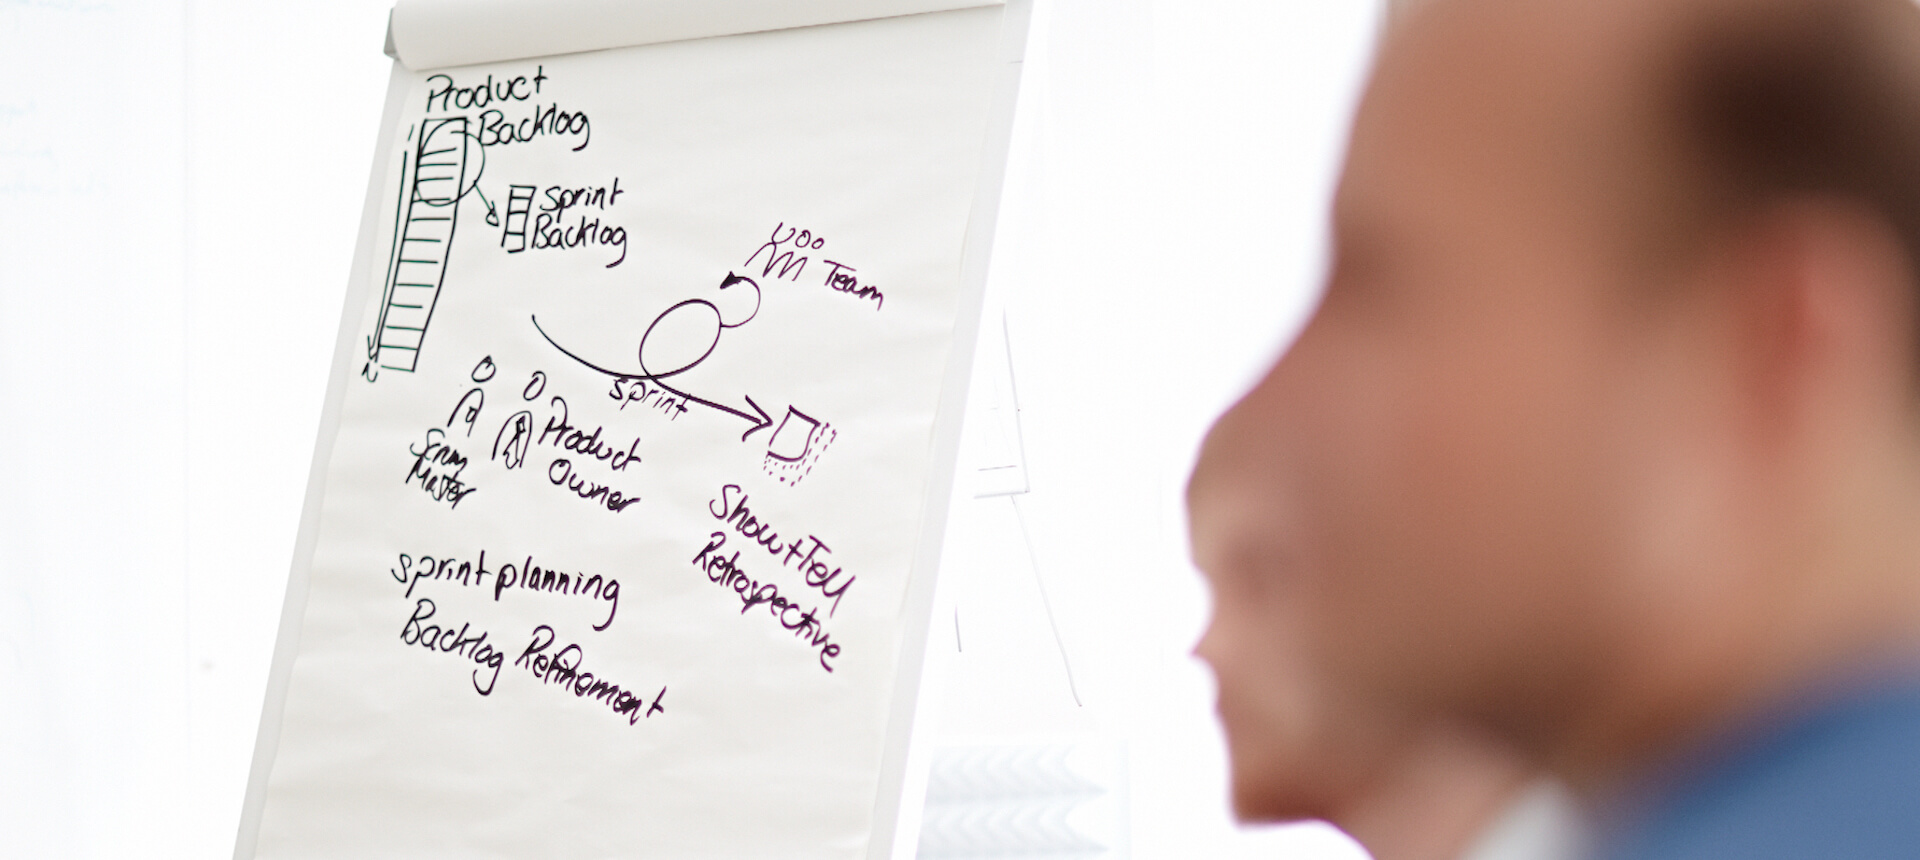 Product
Backlog
sprint
Backlog
Team
sprint
Scrum
Master
Product
Owner
Show+Tell
Retrospective
sprint planning
Backlog Refinement